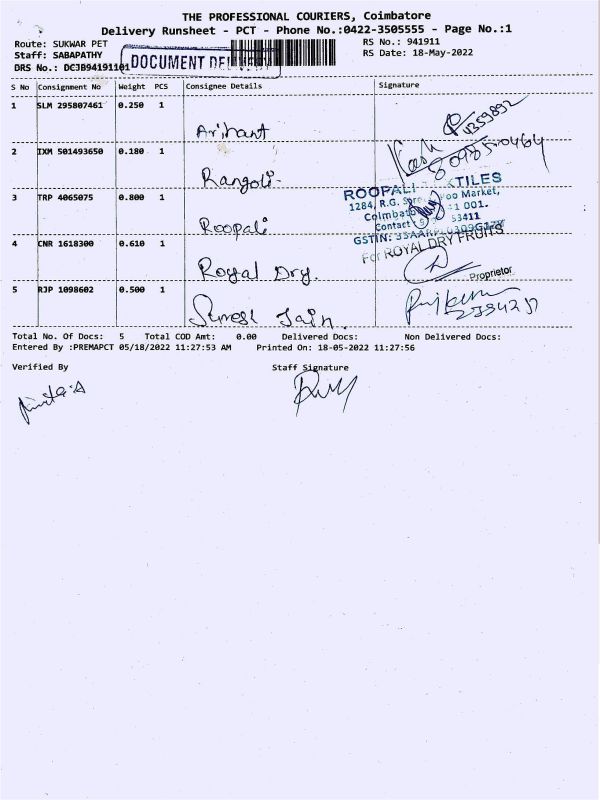 THE PROFESSIONAL COURIERS, Coimbatore
Delivery Runsheet - PCT - Phone No.:0422-3505555 - Page No.:1
Route: SUKWAR PET RS No.: 941911
Staff: SABAPATHY RS Date: 18-May-2022
DRS No.: DCJB94191101 DOCUMENT
S No Consignment No Weight PCS Consignee Details Signature
1 SLM 295807461 0.250 1
Arihant
2 IXM 501493650 0.180 1
Rangoli
3 TRP 4065075 0.800 1
ROOPALI TILES
1284, R.G. Market,
Coimbatore 1 001.
Contact 53411
GSTIN:
Roopali
4 CNR 1618300 0.610 1
For ROYAL DRY FRUITS
Royal Dry.
Proprietor
5 RJP 1098602 0.500 1
Suresh Jain.
Total No. Of Docs: 5 Total COD Amt: 0.00 Delivered Docs: Non Delivered Docs:
Entered By :PREMAPCT 05/18/2022 11:27:53 AM Printed On: 18-05-2022 11:27:56
Verified By Staff Signature